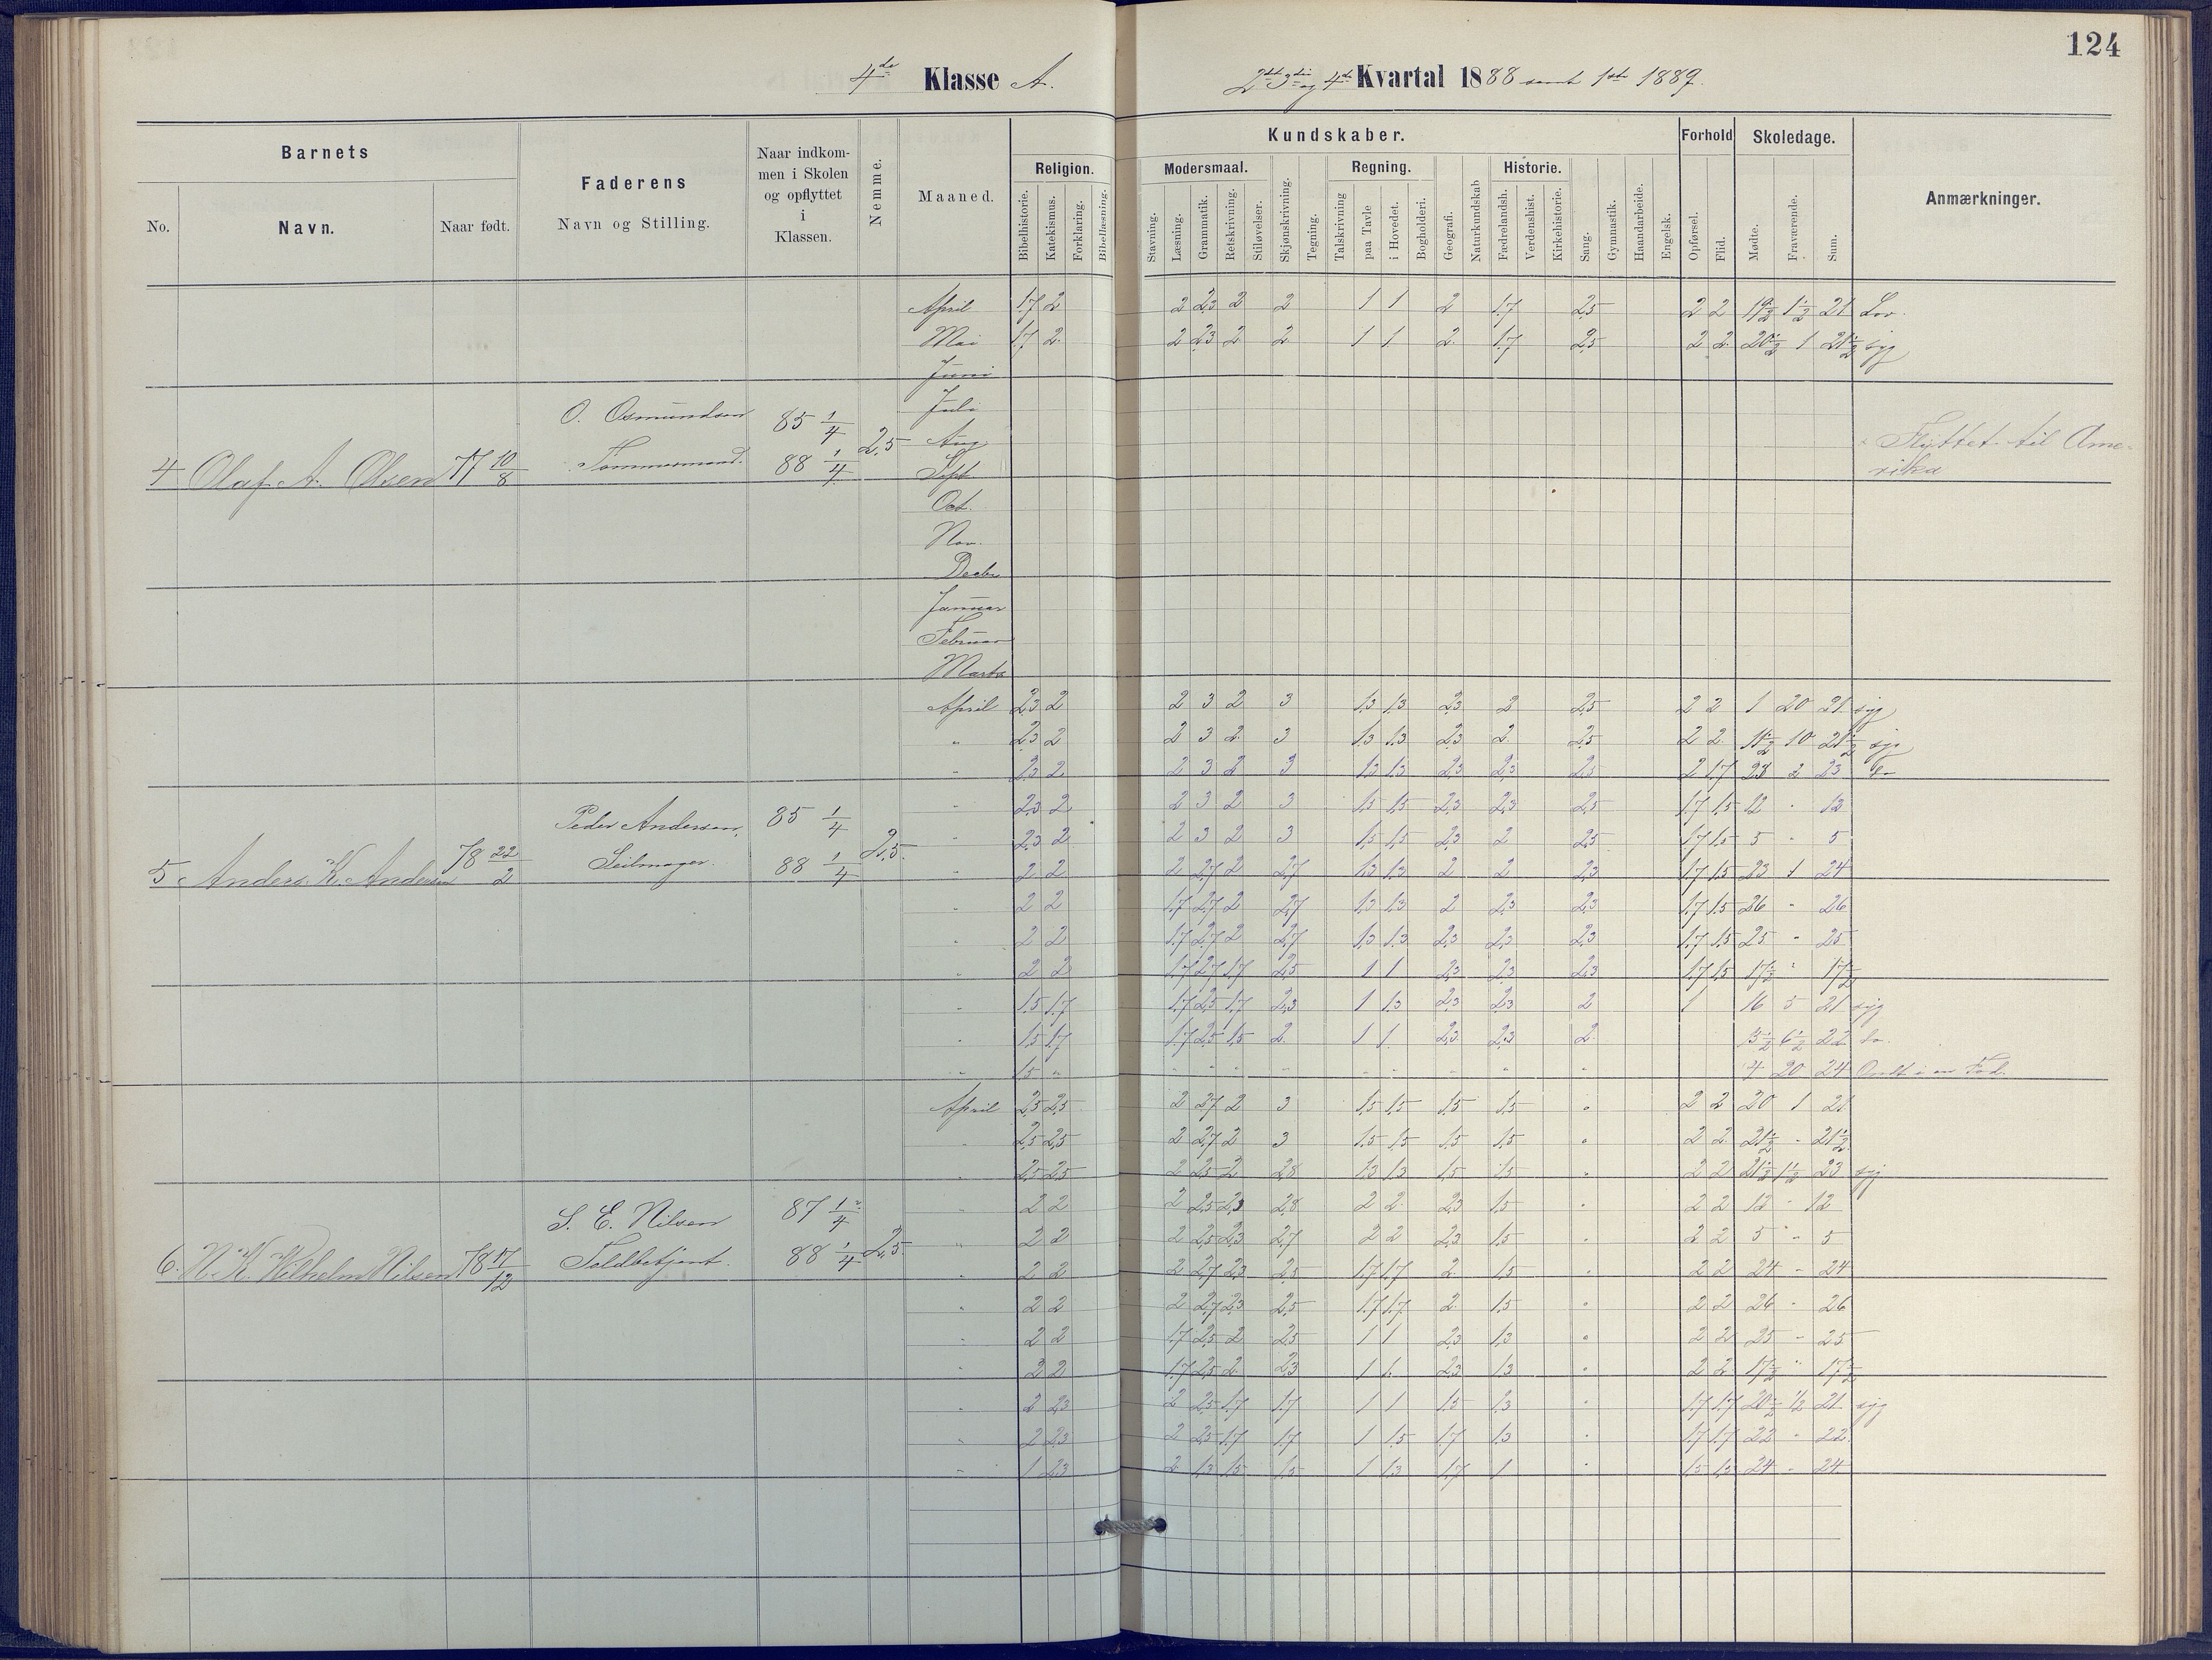 124
4de Klasse A.
2det 3die og 4de Kvartal 1888 samt 1ste 1889.
Barnets
Faderens
Navn og Stilling.
Naar indkom-
men i Skolen
og opflyttet
i
Klassen.
Nemme.
Maaned.
Kundskaber.
Forhold
Skoledage.
Anmærkninger.
No.
Navn.
Naar født.
Religion.
Modersmaal.
Regning.
Historie.
Bibelhistorie.
Katekismus.
Forklaring.
Bibellæsning.
Stavning.
Læsning.
Grammatik.
Retskrivning.
Stiløvelser.
Skjønskrivning.
Tegning.
Talskrivning
paa Tavle
i Hovedet.
Bogholderi.
Geografi.
Naturkundskab
Fædrelandsh.
Verdenshist.
Kirkehistorie.
Sang.
Gymnastik.
Haandarbeide.
Engelsk.
Opførsel.
Flid.
Mødte.
Fraværende.
Sum.
April 1,7 2 2 2,3 2 2 1 1 2 1,7 2,5 2 2 19½ 1½ 21 Lov.
Mai 1,7 2 2 2,3 2 2 1 1 2 1,7 2,5 2 2 20½ 1 21½ syg
Juni
Juli
Aug
Sept
Oct.
Nov.
Decbr
Januar
Februar
Marts
4 Olaf A. Olsen 77 10/8
O. Osmundsen
Tømmermand.
85 1/4
88 1/4
2,5
Flyttet til Ame-
rika
April 2,3 2 2 3 2 3 1,3 1,3 2,3 2 2,5 2 2 1 20 21 syg
" 2,3 2 2 3 2 3 1,3 1,3 2,3 2 2,5 2 2 11½ 10 21½ syg
" 2,3 2 2 3 2 3 1,3 1,3 2,3 2,3 2,5 2 1,7 23
" 2,3 2 2 3 2 3 1,5 1,5 2,3 2,3 2,5 1,7 1,5 12 " 12
" 2,3 2 2 3 2 3 1,5 1,5 2,3 2 2,5 1,7 1,5 5 " 5
" 2 2 2 2,7 2 2,7 1,3 1,3 2 2 2,3 1,7 1,5 23 1 24
" 2 2 1,7 2,7 2 2,7 1,3 1,3 2 2,3 2,3 1,7 1,5 26 " 26
" 2 2 1,7 2,7 2 2,7 1,3 1,3 2,3 2,3 2,3 1,7 1,5 25 " 25
" 2 2 1,7 2,7 1,7 2,5 1 1 2,3 2,3 2,3 1,7 1,5 17½ " 17½
" 1,5 1,7 1,7 2,5 1,7 2,3 1 1,3 2,3 2,3 2 1 16 5 21 syg
" 1,5 1,7 1,7 2,5 1,5 2 1 1 2,3 2,3 2 15½ 6½ 22 do.
" 1,5 " " " " " " " " " " 4 20 24 Ondt i en Fod.
5 Anders K. Andersen 78 22/2
Peder Andersen,
Seilmager.
85 1/4
88 1/4
2,5.
April 2,5 2,5 2 2,7 2 3 1,5 1,5 1,5 1,5 " 2 2 20 1 21
" 2,5 2,5 2 2,7 2 3 1,5 1,5 1,5 1,5 " 2 2 21½ " 21½
" 2,5 2,5 2 2,5 2 2,8 1,3 1,3 1,5 1,5 " 2 2 21½ 1½ 23 syg
" 2 2 2 2,5 2,3 2,8 2 2 2,3 1,5 " 2 2 12 " 12
" 2 2 2 2,5 2,3 2,7 2 2 2,3 1,5 " 2 2 5 " 5
" 2 2 2 2,7 2,3 2,5 1,7 1,7 2 1,5 " 2 2 24 " 24
" 2 2 2 2,7 2,3 2,5 1,7 1,7 2 1,5 " 2 2 26 " 26
" 2 2 1,7 2,5 2 2,5 1 1 2,3 1,3 " 2 2 25 " 25
" 2 2 1,7 2,5 2 2,3 1 1 2,3 1,3 " 2 2 17½ " 17½
" 2 2,3 2 2,5 1,7 1,7 1 1 1,5 1,3 " 1,7 1,7 20½ ½ 21 syg
" 2 2,3 2 2,5 1,7 1,7 1 1,5 1,7 1,3 " 1,7 1,7 22 " 22
" 1 2,3 2 1,3 1,5 1,5 1 1,3 1,7 1 " 1,5 1,5 24 " 24
6. N. K. Wilhelm Nilsen 78 17/12
S. E. Nilsen
Toldbetjent.
87 1/4
88 1/4
2,5.